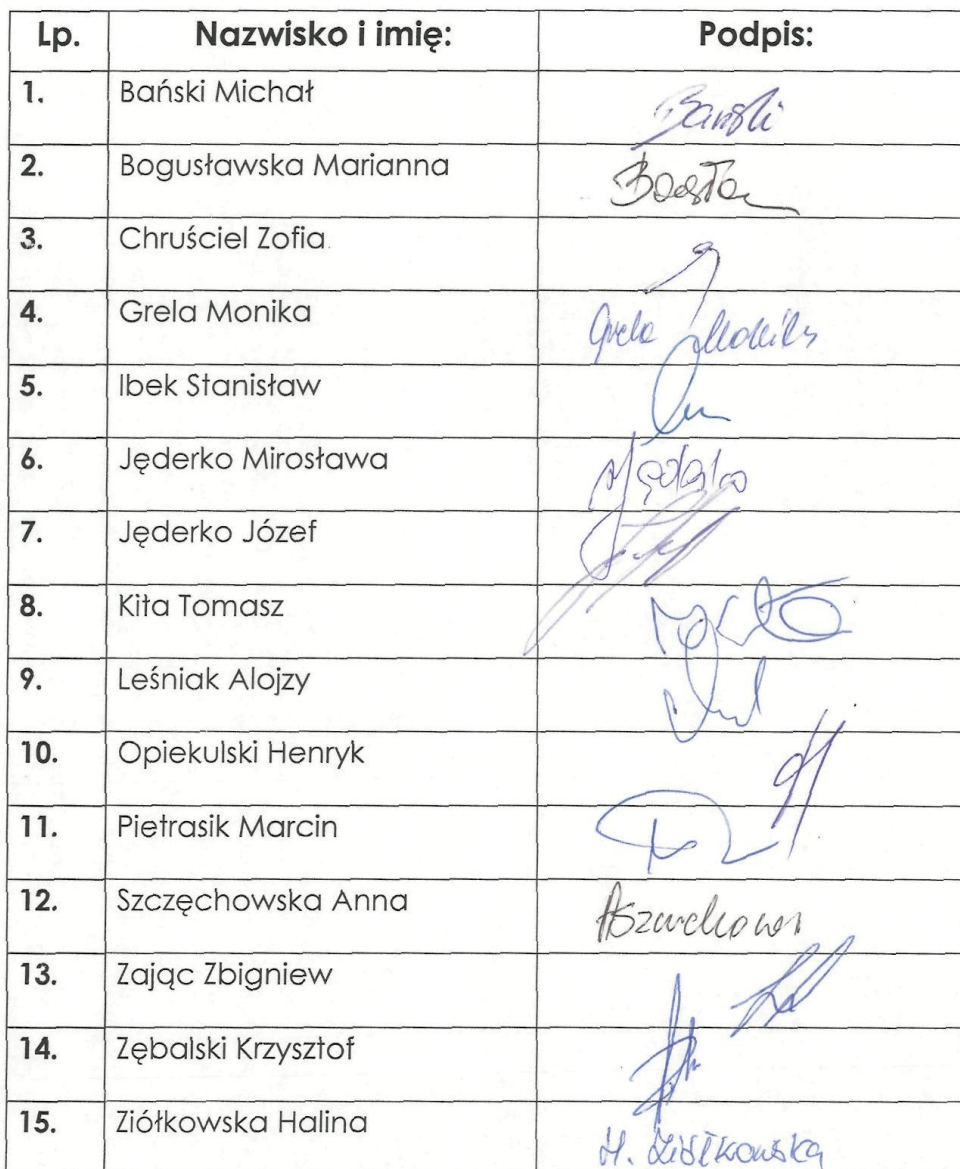 Lp. Nazwisko i imię: Podpis:
1. Bański Michał Bański
2. Bogusławska Marianna
3. Chruściel Zofia
4. Grela Monika Grela Monika
5. Ibek Stanisław
6. Jęderko Mirosława MJęderko
7. Jęderko Józef
8. Kita Tomasz
9. Leśniak Alojzy
10. Opiekulski Henryk
11. Pietrasik Marcin
12. Szczęchowska Anna
13. Zając Zbigniew
14. Zębalski Krzysztof
15. Ziółkowska Halina H. Ziółkowska